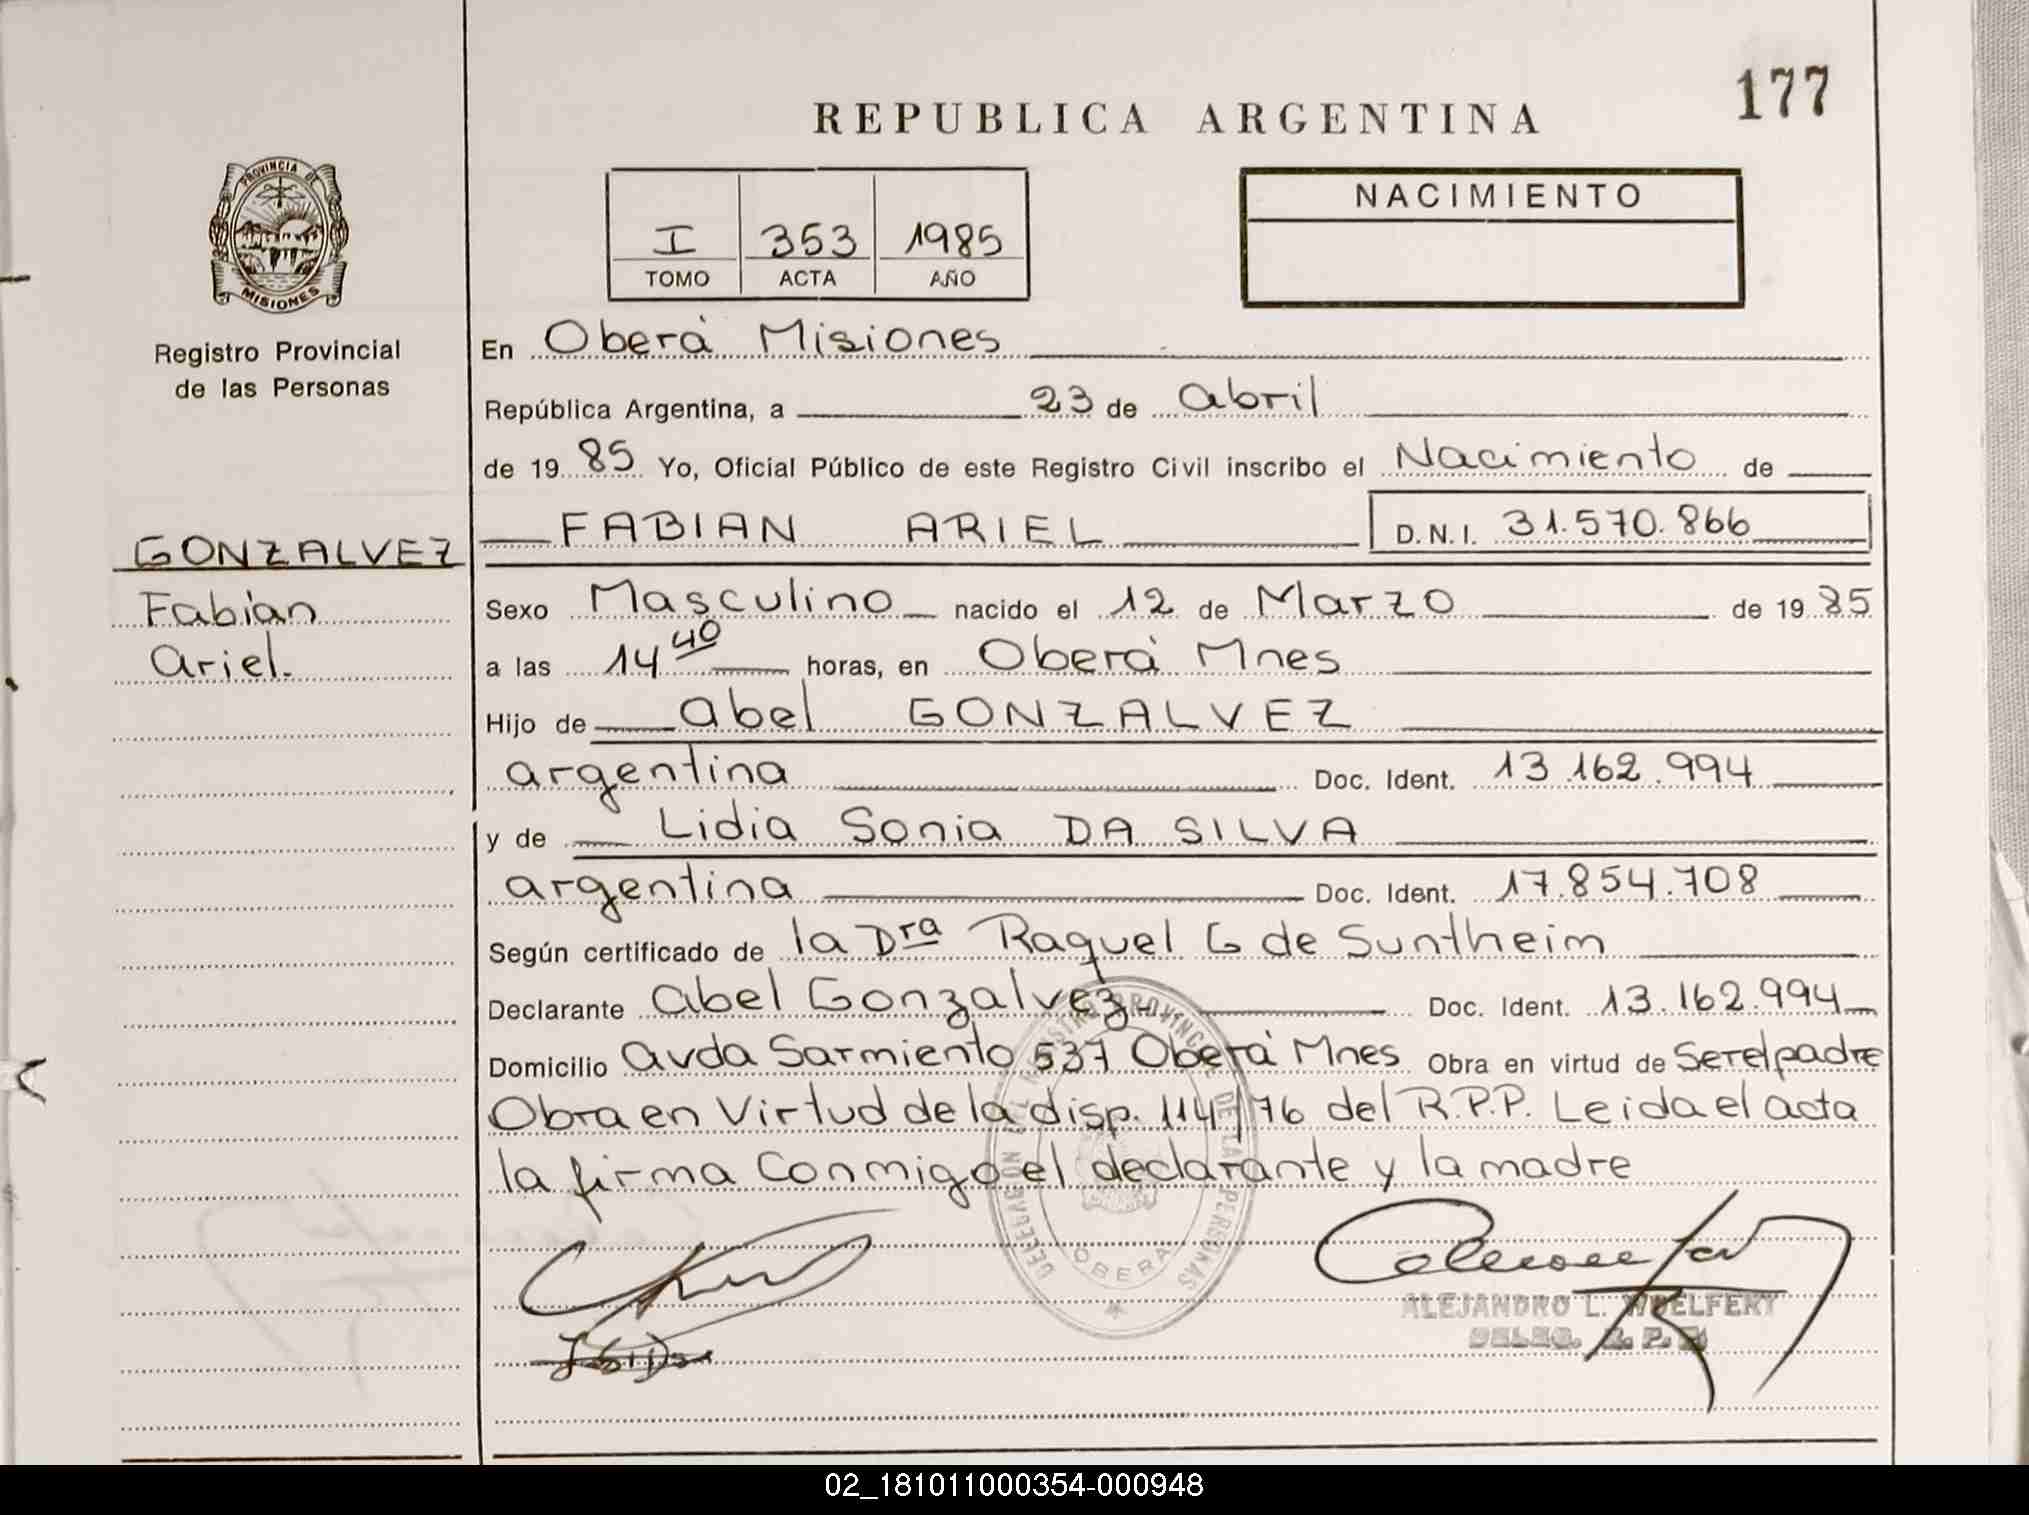 177
REPUBLICA ARGENTINA
PROVINCIA DE
MISIONES
Registro Provincial
de las Personas
I 353 1985
TOMO ACTA AÑO
NACIMIENTO
En Oberá Misiones
República Argentina, a 23 de abril
de 1985 Yo, Oficial Público de este Registro Civil inscribo el Nacimiento de
FABIAN ARIEL D.N.I. 31.570.866
GONZALVEZ
Fabian
Ariel.
Sexo Masculino nacido el 12 de Marzo de 1985
a las 14 40 horas, en Oberá Mnes
Hijo de Abel GONZALVEZ
argentina Doc. Ident. 13.162.994
y de Lidia Sonia DA SILVA
argentina Doc. Ident. 17.854.708
Según certificado de la Dra Raquel G de Suntheim
Declarante Abel Gonzalvez Doc. Ident. 13.162.994
Domicilio Avda Sarmiento 537 Oberá Mnes Obra en virtud de Ser el padre
Obra en Virtud de la disp. 114/76 del R.P.P. Leida el acta
la firma Conmigo el declarante y la madre
DELEGACION DEL REGISTRO PROVINCIAL DE LAS PERSONAS
OBERA
ALEJANDRO L. WOELFERT
DELEG. R. P. P.
02_181011000354-000948